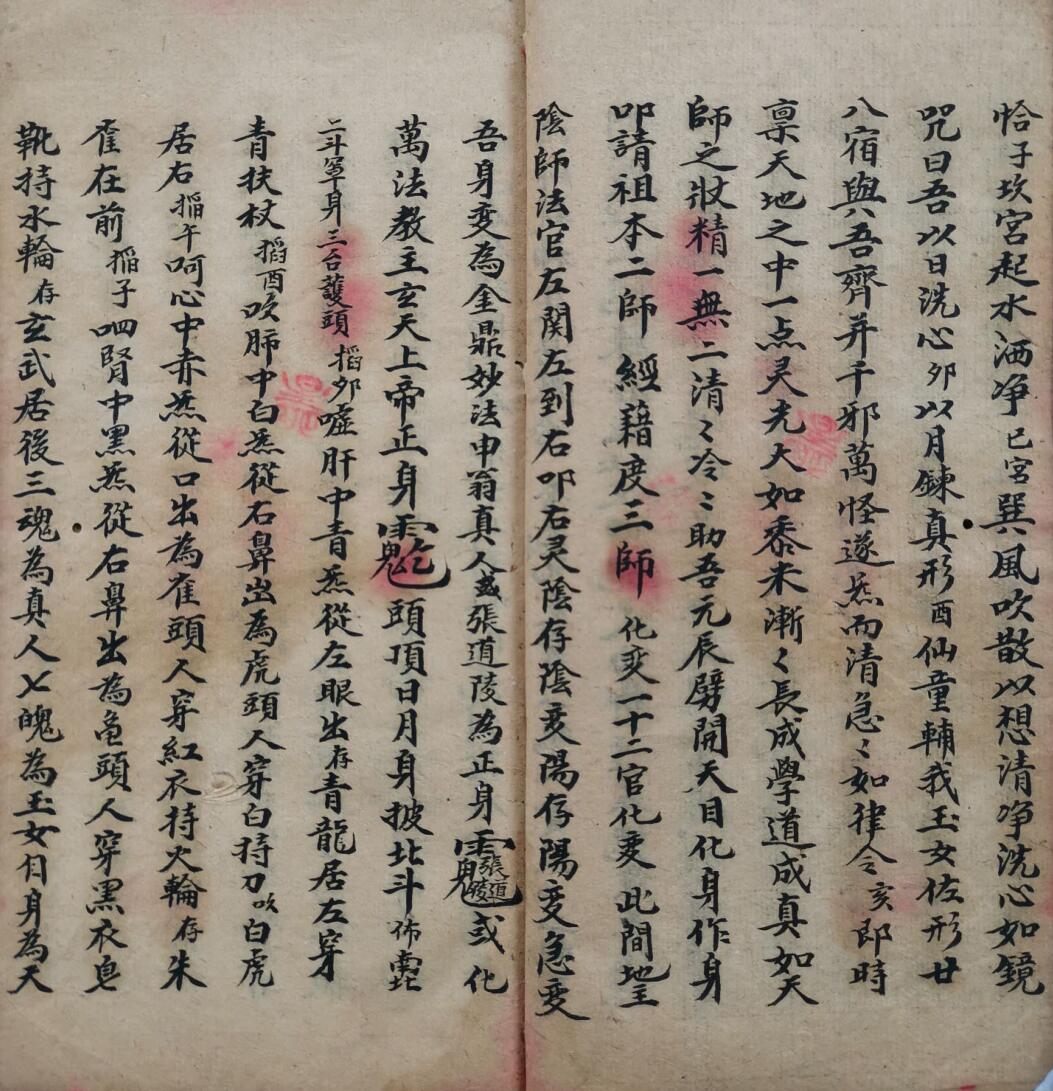 恰子坎宮起水洒净巳宮巽風吹散以想清净洗心如鏡
咒曰吾以日洗心卯以月鍊真形酉仙童輔我玉女佐形廿
八宿與吾齊并千邪萬怪遂炁而清急〻如律令亥即時
禀天地之中一点灵光大如黍米漸〻長成學道成真如天
師之狀精一無二清〻冷〻助吾元辰劈開天目化身作身
叩請祖本二師經籍度三師化変一十二官化変此間地主
陰師法官左関左到右叩右灵陰存陰変陽存陽変急変
吾身変為金鼎妙法申翁真人或張道陵為正身張道陵或化
萬法教主玄天上帝正身頭頂日月身披北斗佈
二斗罩身三台護頭搯卯嘘肝中青炁從左眼出存青龍居左穿
青扶杖搯酉吹肺中白炁從右鼻出為虎頭人穿白持刀吹白虎
居右搯午呵心中赤炁從口出為雀頭人穿紅衣持火輪存朱
雀在前搯子呬腎中黑炁從右鼻出為龟頭人穿黑衣皂
靴持水輪存玄武居後三魂為真人七魄為玉女自身為天